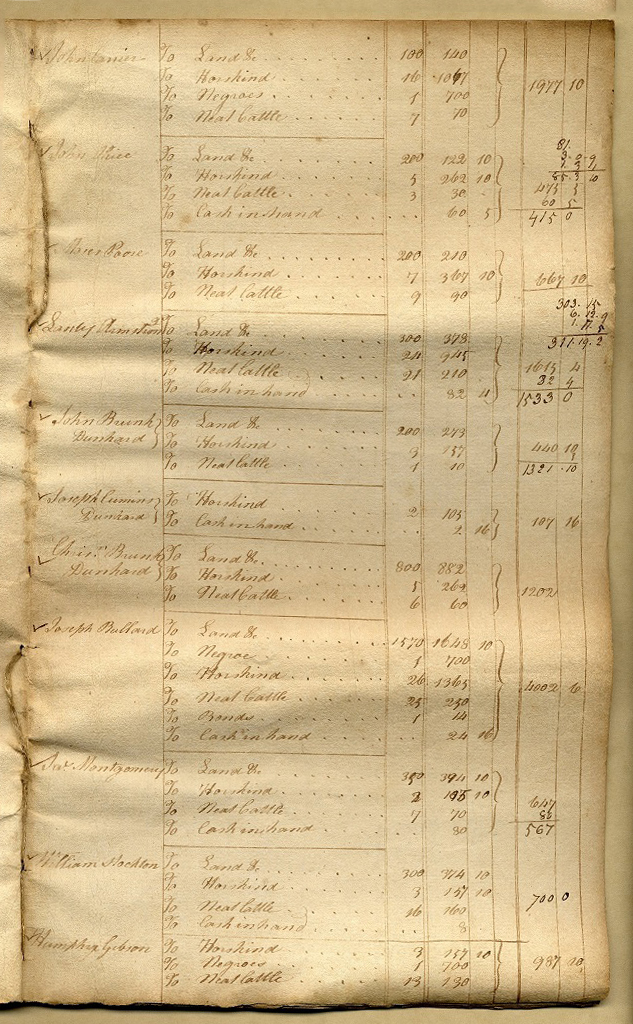 John To Land &c 100 140
To Horskind 16 1067
To Negroes 1 700 1977 10
To Neat Cattle 7 70
81
John To Land &c 200 122 10
To Horskind 5 262 10 85 3 10
To Neat Cattle 3 30 475 5
60 5
To Cash in hand 60 5 415 0
Poore To Land &c 200 210
To Horskind 7 367 10 667 10
To Neat Cattle 9 90
303 15
6 12 9
1 17 5
Lanty Armstrong To Land &c 300 378 311 19 2
To Horskind 24 945
To Neat Cattle 21 210 1615 4
To Cash in hand 82 4 82 4
1533 0
John Brunk To Land &c 200 273
Dunhard To Horskind 3 157 440 10
To Neat Cattle 1 10 1321 10
Joseph Cumins To Horskind 2 105
Dunhard To Cash in hand 2 16 107 16
Chrisr Brunk To Land &c 800 882
Dunhard To Horskind 5 262 1202
To Neat Cattle 6 60
Joseph Bullard To Land &c 1570 1648 10
To Negroe 1 700
To Horskind 26 1365
To Neat Cattle 25 250 4002 6
To Bonds 1 14
To Cash in hand 24 16
Jas Montgomery To Land &c 350 394 10
To Horskind 2 10
To Neat Cattle 7 70 647
To Cash in hand 80
567
William Stockton To Land &c 300 374 10
To Horskind 3 157 10
To Neat Cattle 16 160 700 0
To Cash in hand 8
Humphra Gibson To Horskind 3 157 10
To Negroes 1 700 987 10
To Neat Cattle 13 130